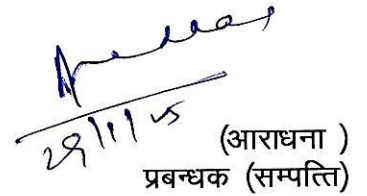 29/1/25
(आराधना )
प्रबन्धक (सम्पत्ति)